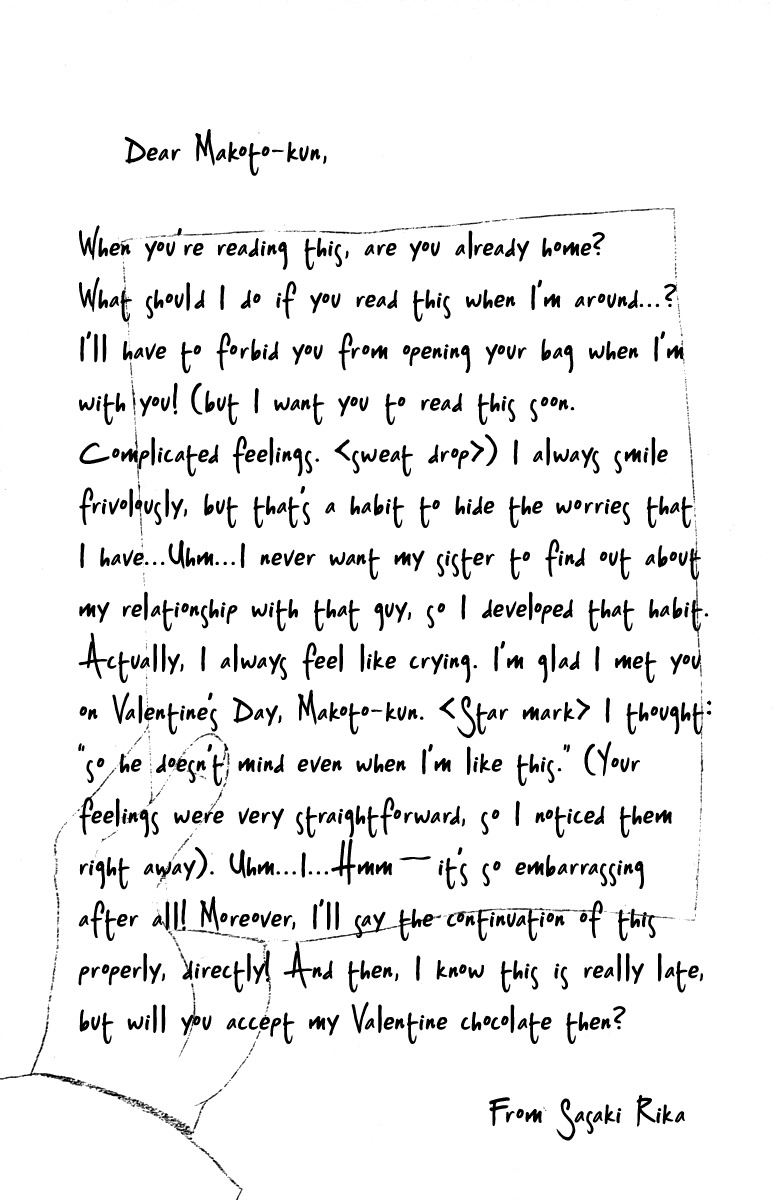 Dear Makoto-kun,
When you're reading this, are you already home?
What should I do if you read this when I'm around...?
I'll have to forbid you from opening your bag when I'm
with you! (but I want you to read this soon.
Complicated feelings. <sweat drop>) I always smile
frivolously, but that's a habit to hide the worries that
I have...Uhm...I never want my sister to find out about
my relationship with that guy, so I developed that habit.
Actually, I always feel like crying. I'm glad I met you
on Valentine's Day, Makoto-kun. <Star mark> I thought:
"so he doesn't mind even when I'm like this." (Your
feelings were very straightforward, so I noticed them
right away). Uhm...I...Hmm — it's so embarrassing
after all! Moreover, I'll say the continuation of this
properly, directly! And then, I know this is really late,
but will you accept my Valentine chocolate then?
From Sasaki Rika